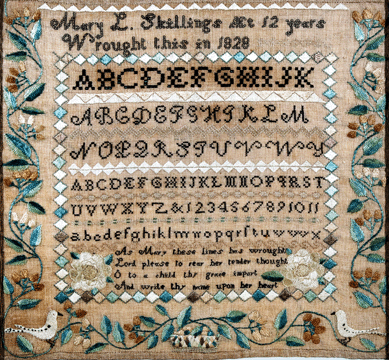 Mary L. Skillings Æt 12 years
Wrought this in 1828
ABCDEFGHIJK
ABCDEFGHIKLM
NOPQRSTUVWY
ABCDEFGHIJKLMNOPQRST
UVWXYZ&1234567891011
abcdefghijklmnopqrstuvwx
As Mary these lines has wrought
Lord please to rear her tender thought
O to a child thy grace impart
And write thy name upon her heart